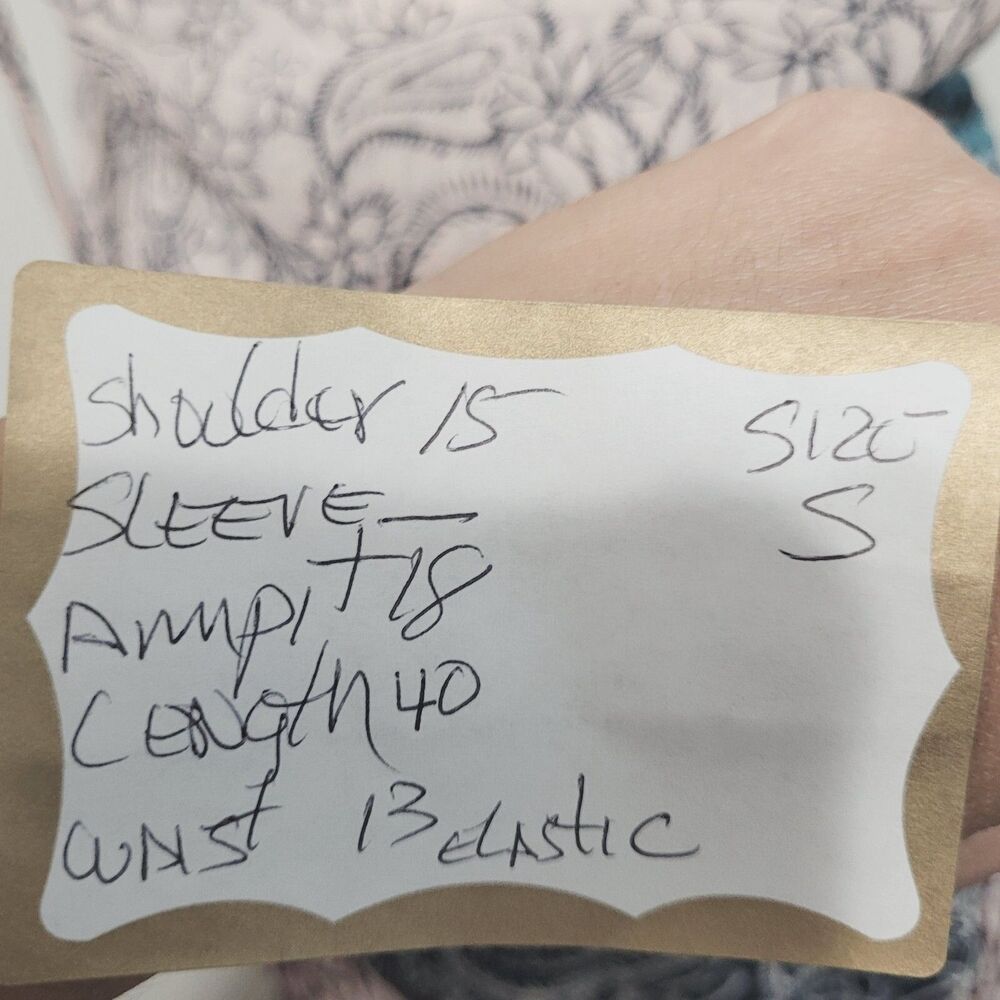 Shoulder 15
SIZE
S
SLEEVE —
Armpit 18
LENGth 40
WAISt 13 ELAStIC